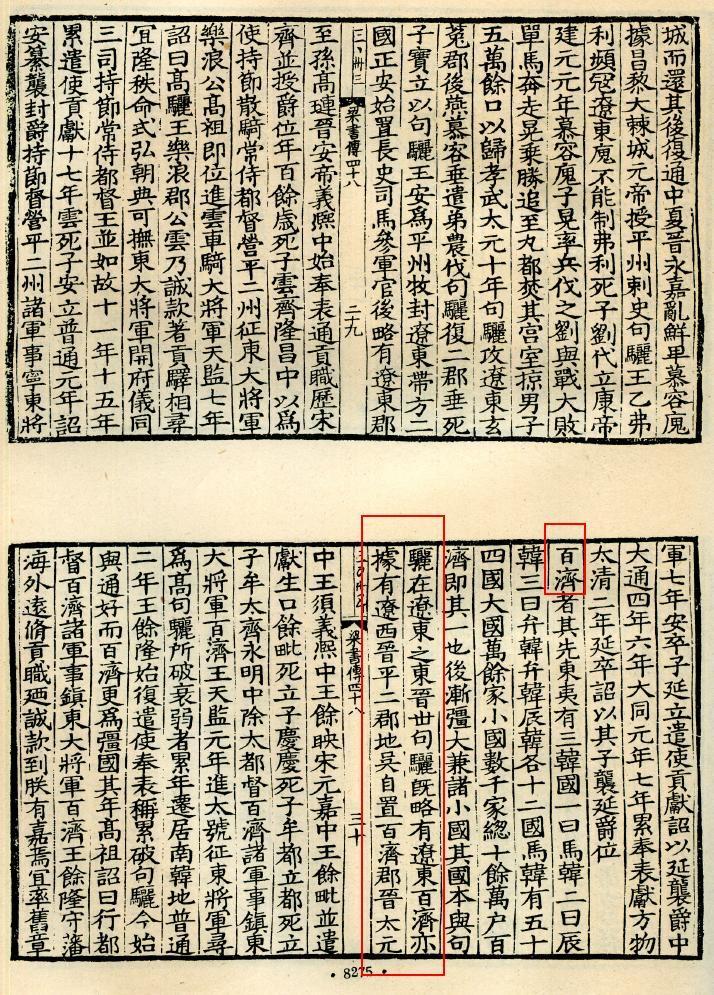 城而還其後復通中夏晉永嘉亂鮮卑慕容廆
據昌黎大棘城元帝授平州剌史句驪王乙弗
利頻寇遼東廆不能制弗利死子劉代立康帝
建元元年慕容廆子晃率兵伐之劉與戰大敗
單馬奔走晃乘勝追至丸都焚其宮室掠男子
五萬餘口以歸孝武太元十年句驪攻遼東玄
菟郡後燕慕容垂遣弟農伐句驪復二郡垂死
子寶立以句驪王安爲平州牧封遼東帶方二
國正安始置長史司馬參軍官後略有遼東郡
梁書傳四十八 二九
至孫高璉晉安帝義熙中始奉表通貢職歷宋
齊並授爵位年百餘歲死子雲齊隆昌中以爲
使持節散騎常侍都督營平二州征東大將軍
樂浪公高祖即位進雲車騎大將軍天監七年
詔曰高驪王樂浪郡公雲乃誠款著貢驛相尋
宜隆秩命式弘朝典可撫東大將軍開府儀同
三司持節常侍都督王並如故十一年十五年
累遣使貢獻十七年雲死子安立普通元年詔
安纂襲封爵持節督營平二州諸軍事寧東將
軍七年安卒子延立遣使貢獻詔以延襲爵中
大通四年六年大同元年七年累奉表獻方物
太清二年延卒詔以其子襲延爵位
百濟者其先東夷有三韓國一曰馬韓二曰辰
韓三曰弁韓弁韓辰韓各十二國馬韓有五十
四國大國萬餘家小國數千家總十餘萬户百
濟即其一也後漸彊大兼諸小國其國本與句
驪在遼東之東晉世句驪旣略有遼東百濟亦
據有遼西晉平二郡地矣自置百濟郡晉太元
梁書傳四十八 三十
中王須義熙中王餘映宋元嘉中王餘毗並遣
獻生口餘毗死立子慶慶死子牟都立都死立
子牟太齊永明中除太都督百濟諸軍事鎮東
大將軍百濟王天監元年進太號征東將軍尋
爲高句驪所破衰弱者累年遷居南韓地普通
二年王餘隆始復遣使奉表稱累破句驪今始
與通好而百濟更爲彊國其年高祖詔曰行都
督百濟諸軍事鎮東大將軍百濟王餘隆守藩
海外遠脩貢職廼誠款到朕有嘉焉宜率舊章
• 8275 •